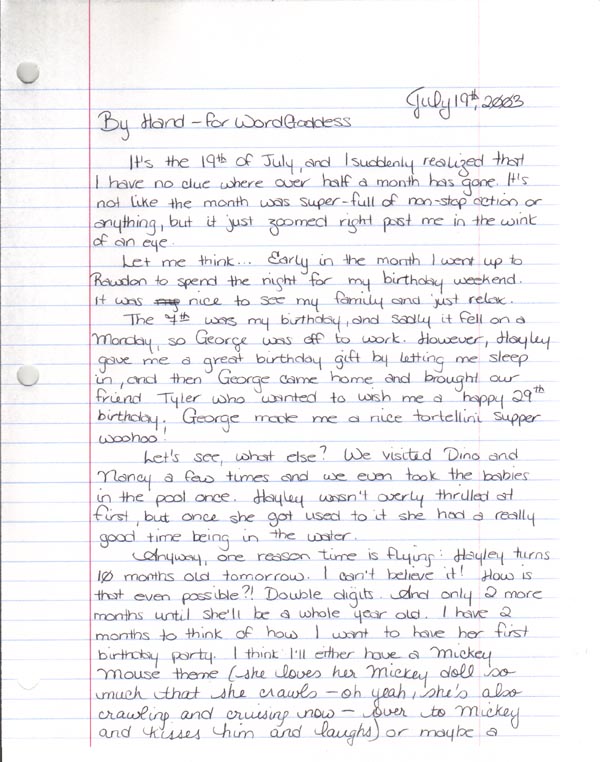 July 19th, 2003
By Hand - for WordGoddess
It's the 19th of July, and I suddenly realized that
I have no clue where over half a month has gone. It's
not like the month was super-full of non-stop action or
anything, but it just zoomed right past me in the wink
of an eye.
Let me think... Early in the month I went up to
Rawdon to spend the night for my birthday weekend.
It was nice to see my family and just relax.
The 7th was my birthday, and sadly it fell on a
Monday, so George was off to work. However, Hayley
gave me a great birthday gift by letting me sleep
in, and then George came home and brought our
friend Tyler who wanted to wish me a happy 29th
birthday. George made me a nice tortellini supper
woohoo!
Let's see, what else? We visited Dino and
Nancy a few times and we even took the babies
in the pool once. Hayley wasn't overly thrilled at
first, but once she got used to it she had a really
good time being in the water.
Anyway, one reason time is flying: Hayley turns
10 months old tomorrow. I can't believe it! How is
that even possible?! Double digits. And only 2 more
months until she'll be a whole year old. I have 2
months to think of how I want to have her first
birthday party. I think I'll either have a Mickey
Mouse theme (she loves her Mickey doll so
much that she crawls - oh yeah, she's also
crawling and cruising now - over to Mickey
and kisses him and laughs) or maybe a